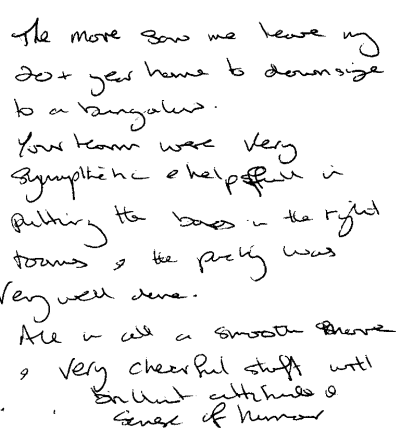 The move saw me leave my
20+ year home to downsize
to a bungalow.
Your team were very
sympthetic & helpful in
putting the boxes in the right
rooms & the packing was
very well done.
All in all a smooth move
& very cheerful staff with
brilliant attitude &
sense of humour